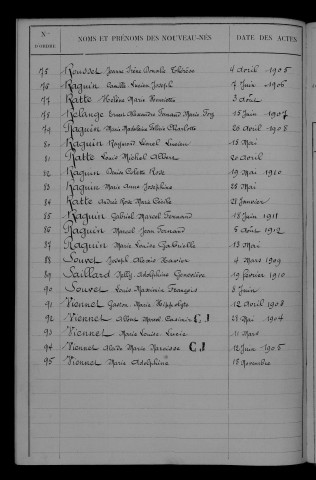 N° D'ORDRE NOMS ET PRÉNOMS DES NOUVEAU-NÉS DATE DES ACTES
75 Rousset Jeanne Irène Thérèse 4 avril 1905
76 Raguin Camille Lucien Joseph 7 Juin 1906
77 Ratte Hélène Marie Henriette 3 août
78 Relange Ernest Alexandre Fernand Marie 15 Juin 1907
79 Raguin Marie Madeleine Charlotte 20 avril 1908
80 Raguin Raymond Lionel Lucien 15 Mai
81 Ratte Louis Michel Albert 20 avril
82 Raguin Denise Colette Rose 19 Mai 1910
83 Raguin Marie Anna Joséphine 28 Mai
84 Ratte André Rose Marie 21 Janvier
85 Raguin Gabriel Marcel Fernand 18 Juin 1911
86 Raguin Marcel Jean Fernand 5 août 1912
87 Raguin Marie Louise Gabrielle 13 Mai
88 Souvet Joseph Alexis Xavier 4 Mars 1909
89 Saillard Nelly Adolphine Geneviève 19 février 1910
90 Souvet Louis Maximin François 6 Juin
91 Viennet Gaston Marie Hippolyte 12 avril 1903
92 Viennet Albert Marcel Casimir C J 28 Mai 1904
93 Viennet Marie Louise Lucie 11 Mars
94 Viennet Marie Narcisse C J 12 Juin 1905
95 Viennet Marie Adolphine 18 Novembre